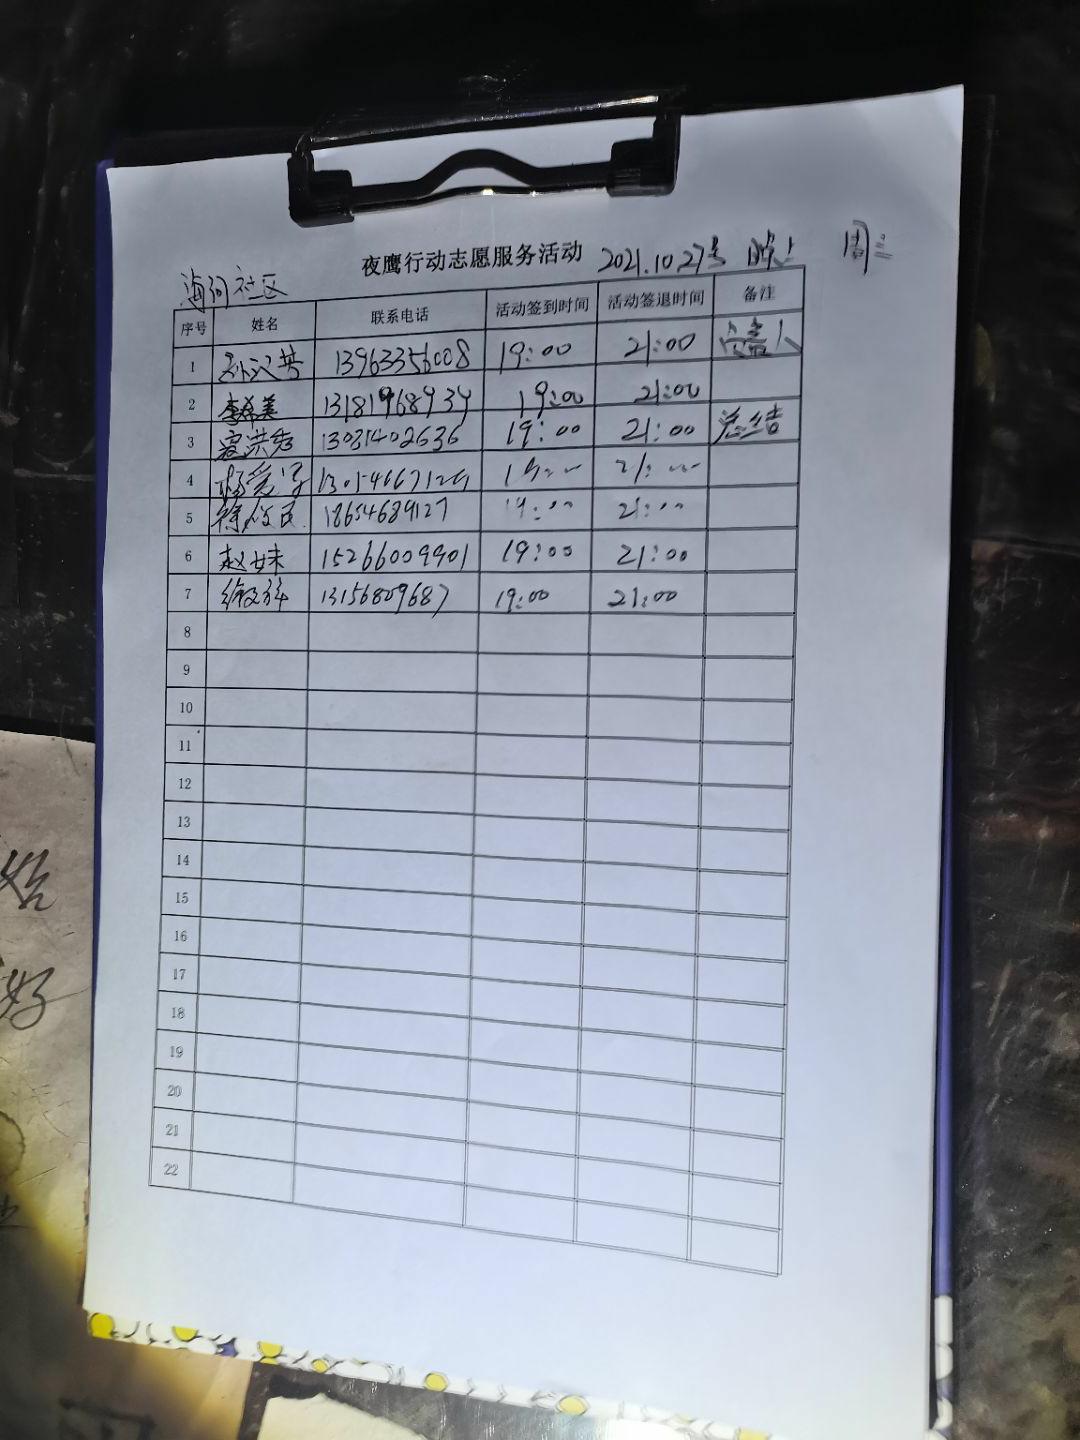 夜鹰行动志愿服务活动 2021.10.27号 晚上 周三
海河社区
序号 姓名 联系电话 活动签到时间 活动签退时间 备注
1 13963356008 19:00 21:00 负责人
2 李希美 13181968934 19:00 21:00
3 寇洪秀 13031402636 19:00 21:00 总结
4 杨爱 19:00 21:00
5 徐 18654689127 19:00 21:00
6 赵妹 15266009901 19:00 21:00
7 13156809687 19:00 21:00
8
9
10
11
12
13
14
15
16
17
18
19
20
21
22
始
好